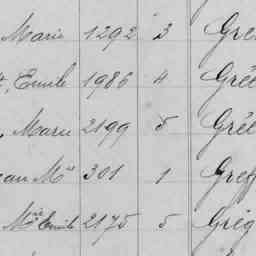 Marie 1292 3 Gre
t, Emile 1986 4 Gré
, Marie 2199 5 Gré
ean Mie 301 1 Gref
Mie Emile 2175 5 Grig